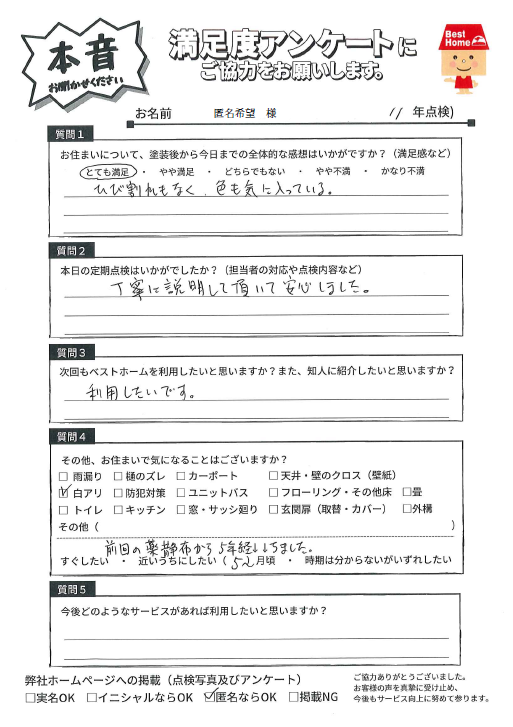 本音
お聞かせください
満足度アンケートに
ご協力をお願いします。
Best
Home
お名前 匿名希望 様 11 年点検)
質問1
お住まいについて、塗装後から今日までの全体的な感想はいかがですか?(満足感など)
とても満足 ・ やや満足 ・ どちらでもない ・ やや不満 ・ かなり不満
ひび割れもなく、色も気に入っている。
質問2
本日の定期点検はいかがでしたか?(担当者の対応や点検内容など)
丁寧に説明して頂いて安心しました。
質問3
次回もベストホームを利用したいと思いますか?また、知人に紹介したいと思いますか?
利用したいです。
質問4
その他、お住まいで気になることはございますか?
□ 雨漏り □ 樋のズレ □ カーポート □ 天井・壁のクロス(壁紙)
☑ 白アリ □ 防犯対策 □ ユニットバス □ フローリング・その他床 □畳
□ トイレ □ キッチン □ 窓・サッシ廻り □ 玄関扉(取替・カバー) □外構
その他( )
前回の薬静布から5年経ちました。
すぐしたい ・ 近いうちにしたい( 5~ 月頃 ・ 時期は分からないがいずれしたい
質問5
今後どのようなサービスがあれば利用したいと思いますか?
弊社ホームページへの掲載(点検写真及びアンケート)
□実名OK □イニシャルならOK ☑匿名ならOK □掲載NG
ご協力ありがとうございました。
お客様の声を真摯に受け止め、
今後もサービス向上に努めて参ります。